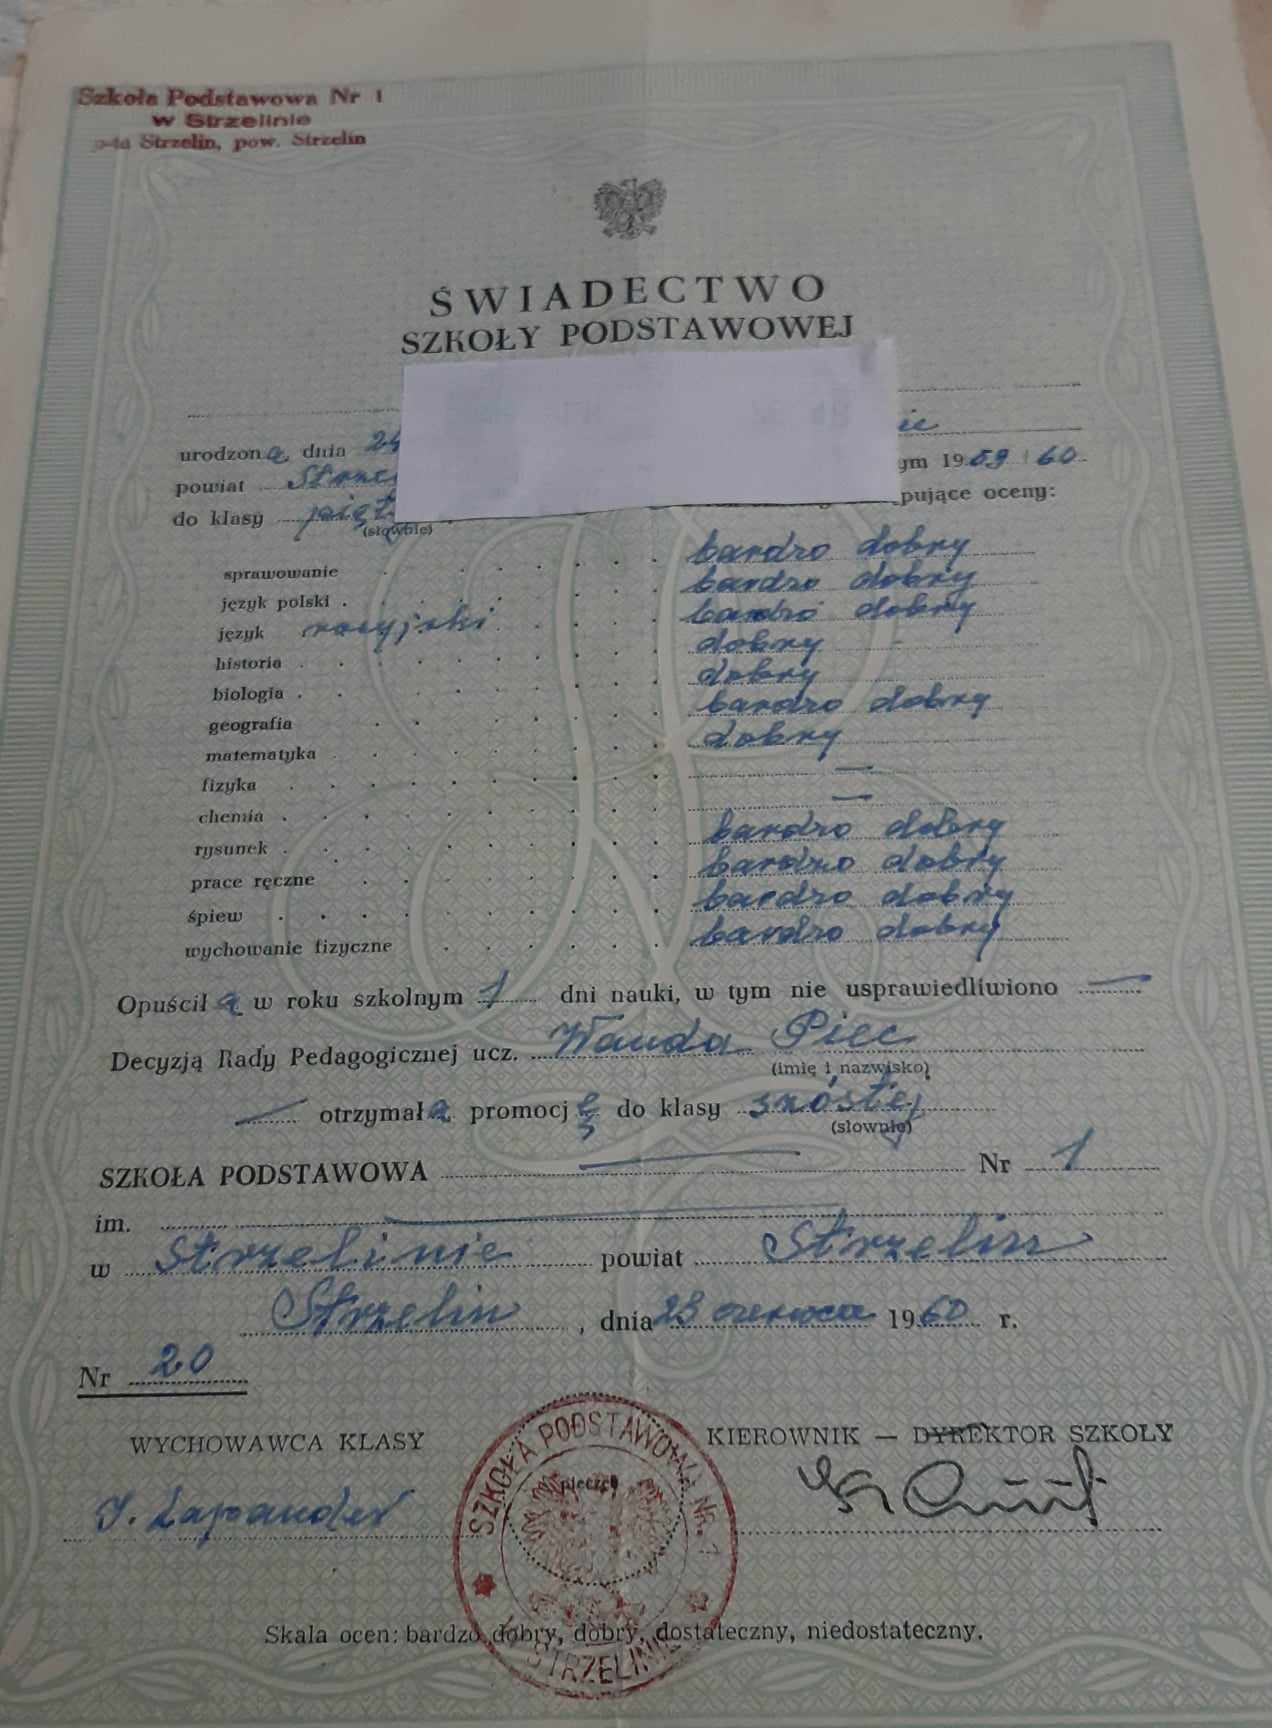 Szkoła Podstawowa Nr 1
w Strzelinie
Strzelin, pow. Strzelin
ŚWIADECTWO
SZKOŁY PODSTAWOWEJ
urodzona dnia 24
powiat
ym 1959/60
do klasy
pujące oceny:
(słownie)
sprawowanie bardzo dobry
język polski bardzo dobry
język rosyjski bardzo dobry
historia dobry
biologia dobry
geografia bardzo dobry
matematyka dobry
fizyka —
chemia —
rysunek bardzo dobry
prace ręczne bardzo dobry
śpiew bardzo dobry
wychowanie fizyczne bardzo dobry
Opuściła w roku szkolnym 1 dni nauki, w tym nie usprawiedliwiono —
Decyzją Rady Pedagogicznej ucz. Wanda Piec
(imię i nazwisko)
— otrzymała promocję do klasy szóstej
(słownie)
SZKOŁA PODSTAWOWA — Nr 1
im. —
w Strzelinie powiat Strzelin
Strzelin, dnia 23 czerwca 1960 r.
Nr 20
WYCHOWAWCA KLASY KIEROWNIK — DYREKTOR SZKOŁY
pieczęć
SZKOŁA PODSTAWOWA NR. 1
W STRZELINIE
Skala ocen: bardzo dobry, dobry, dostateczny, niedostateczny.